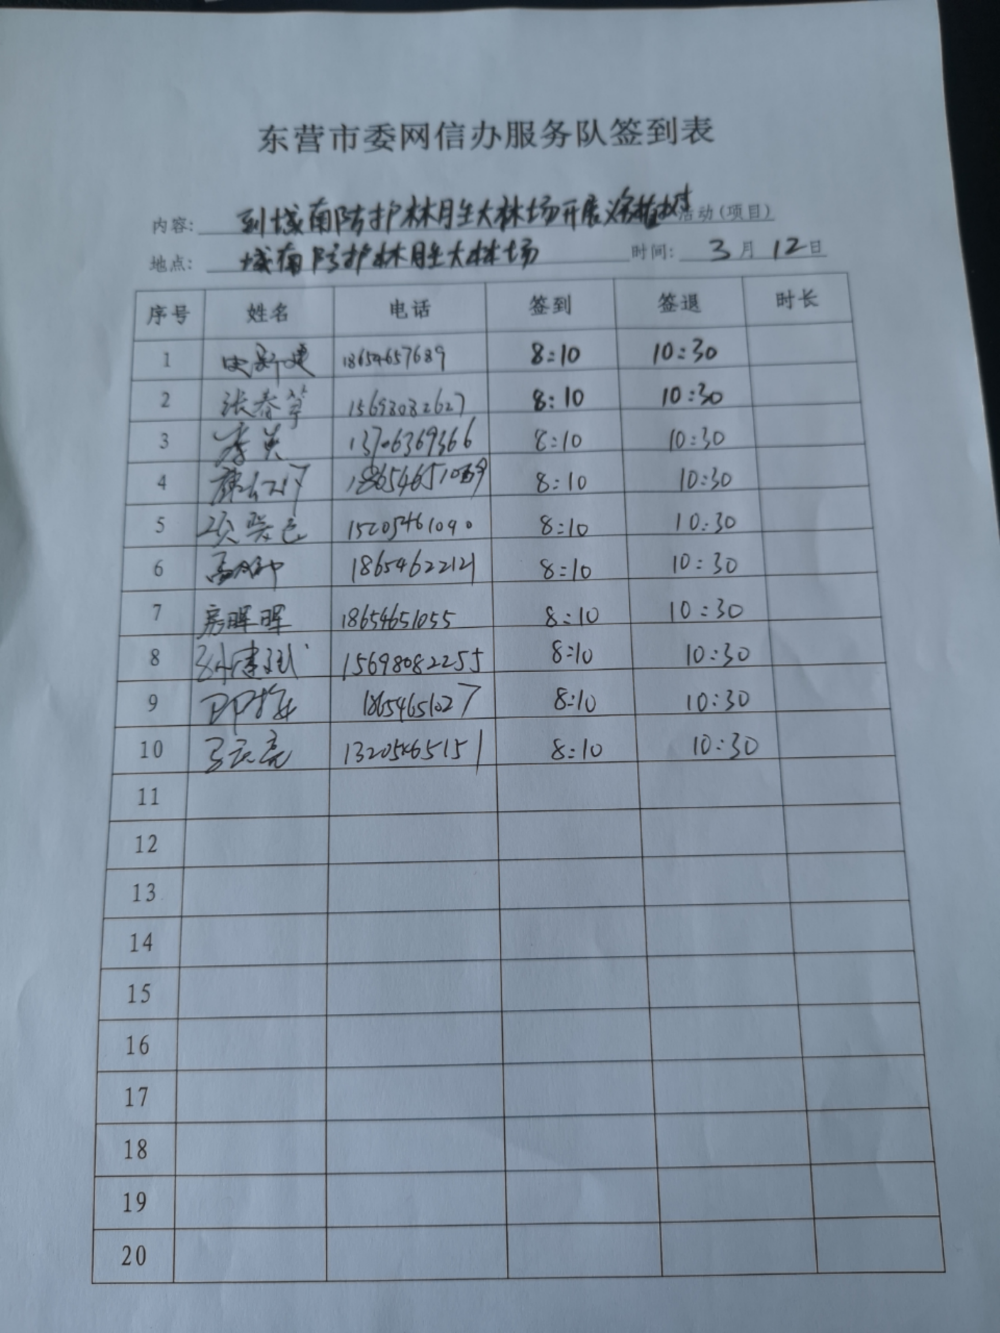 东营市委网信办服务队签到表
内容: 到城南防护林胜大林场开展义务植树活动(项目)
地点: 城南防护林胜大林场 时间: 3月12日
序号 姓名 电话 签到 签退 时长
1 18654657689 8:10 10:30
2 张春 15698082627 8:10 10:30
3 李英 13706369366 8:10 10:30
4 8:10 10:30
5 15205461090 8:10 10:30
6 18654622121 8:10 10:30
7 房晖晖 18654651055 8:10 10:30
8 孙建斌 15698082255 8:10 10:30
9 18654651027 8:10 10:30
10 13205465151 8:10 10:30
11
12
13
14
15
16
17
18
19
20